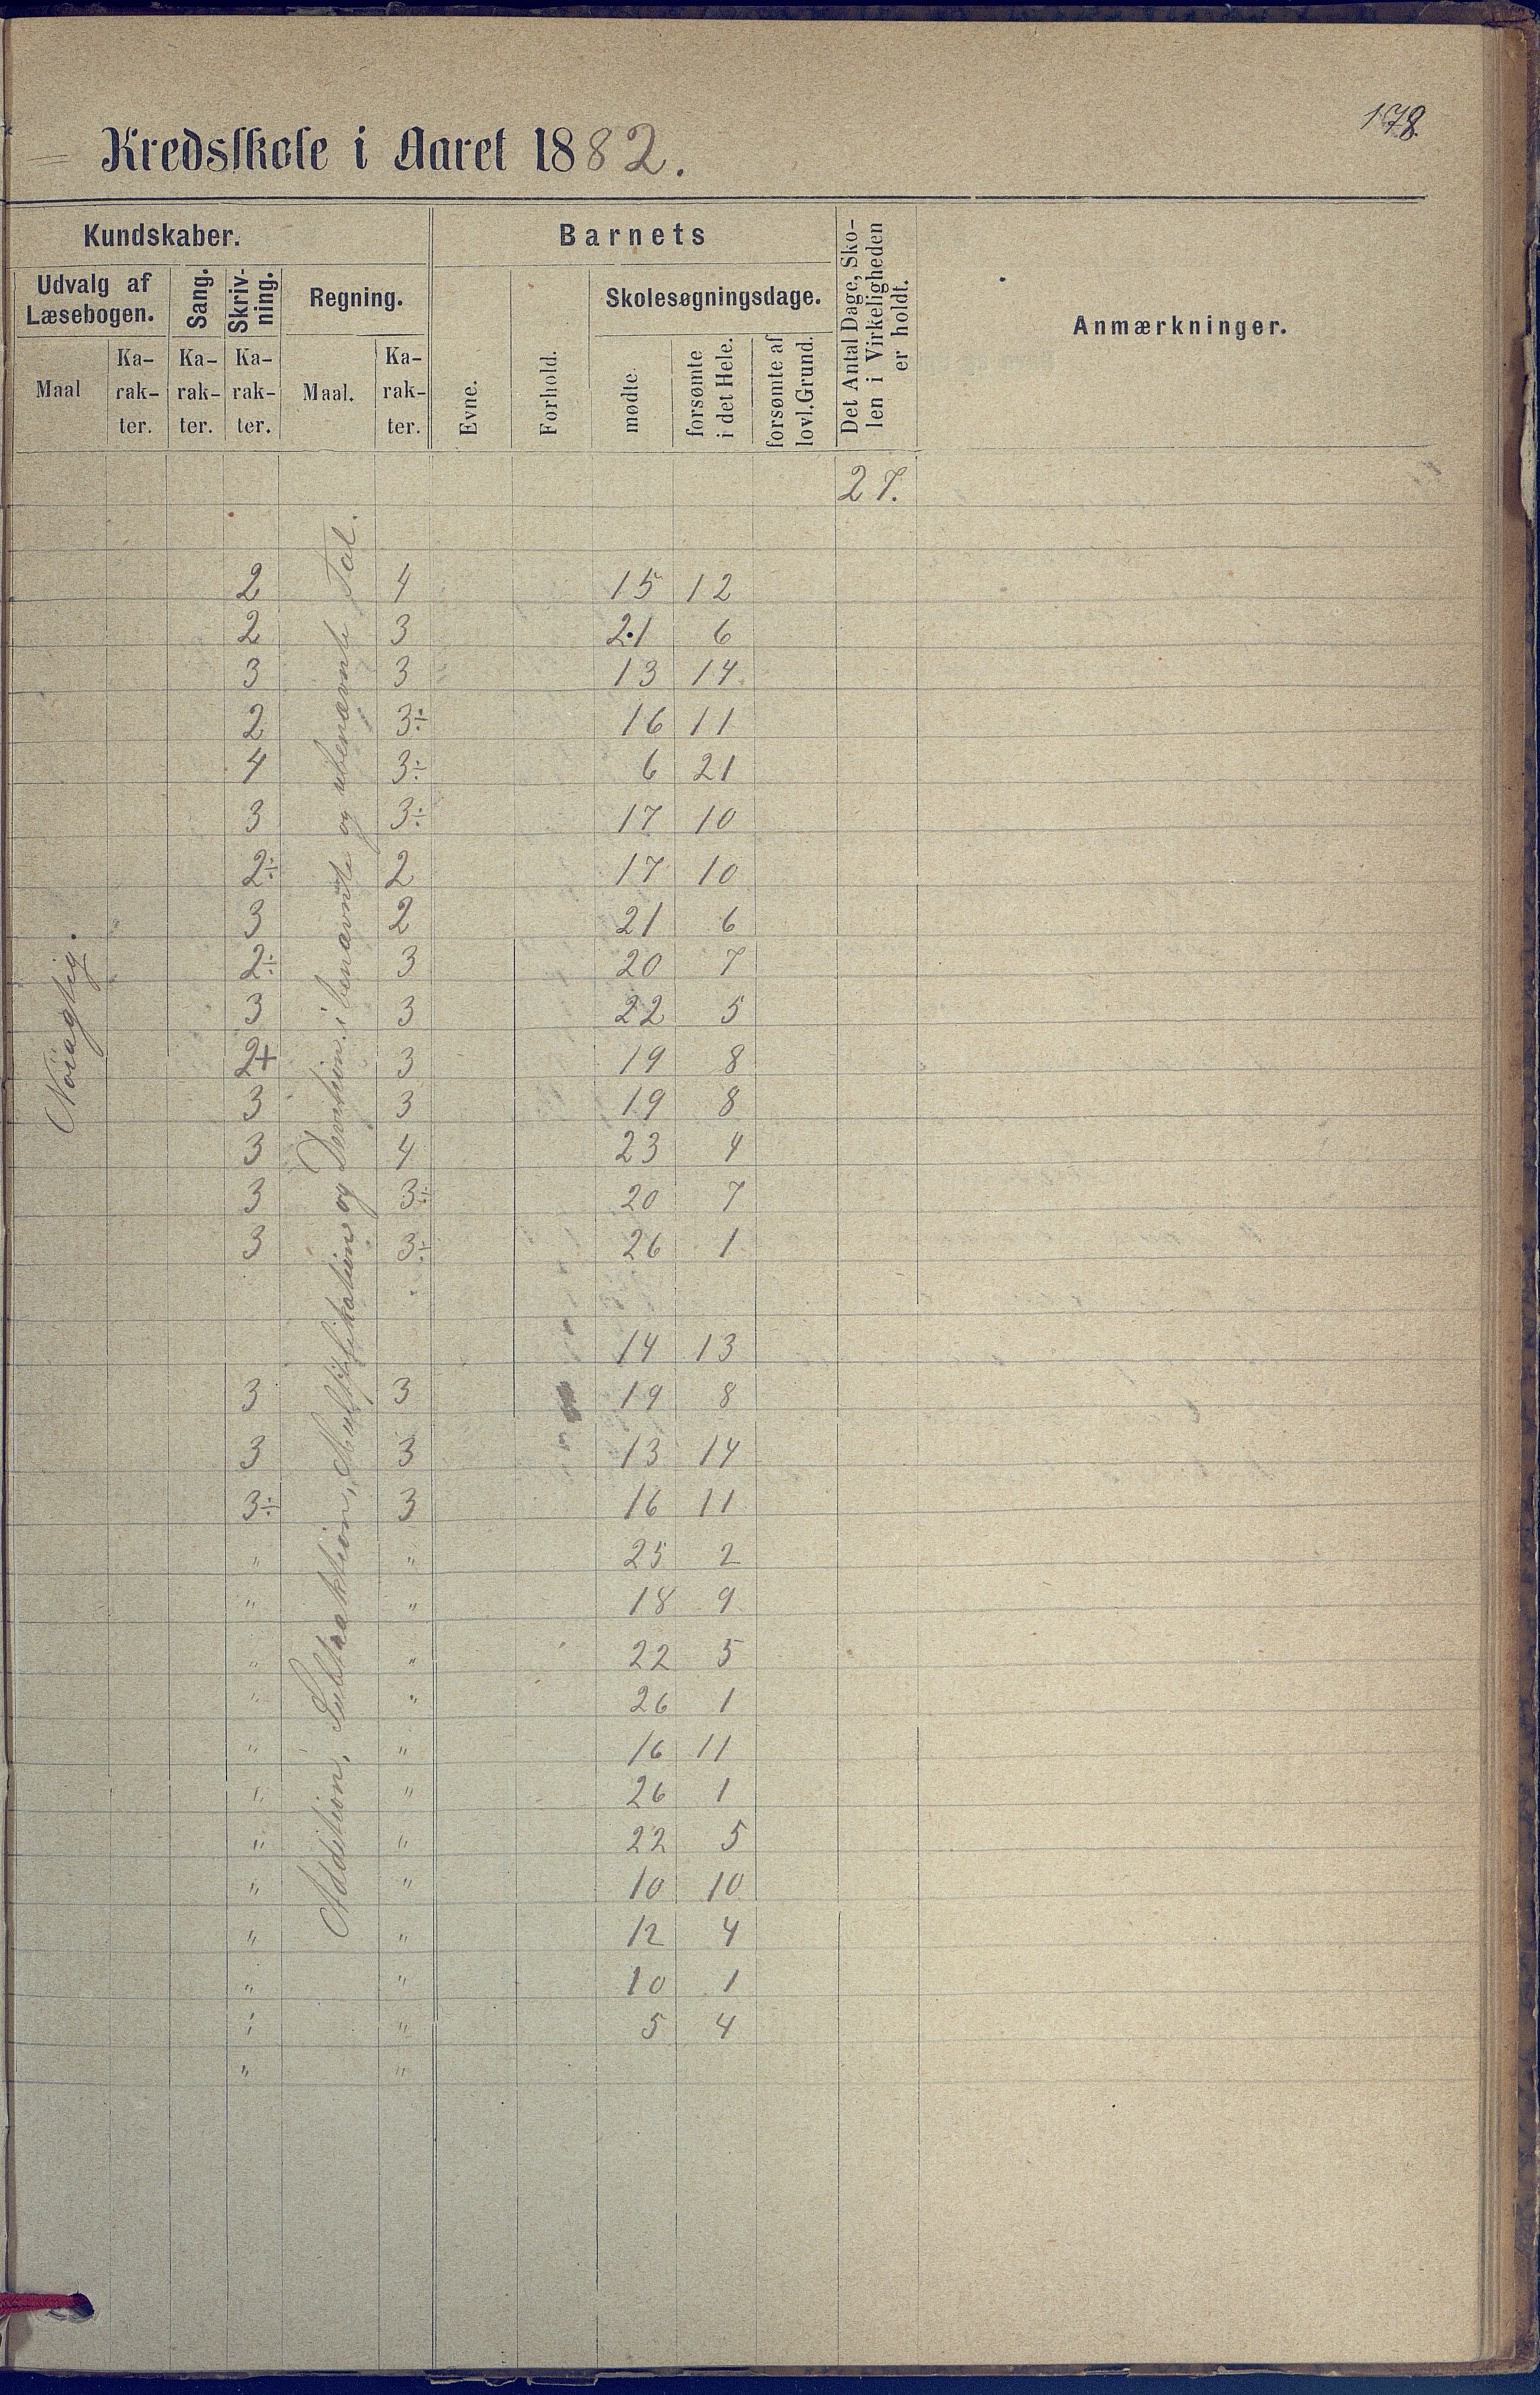 178
Kredsskole i Aaret 1882.
Kundskaber. Barnets Det Antal Dage, Sko-
len i Virkeligheden
er holdt. Anmærkninger.
Udvalg af
Læsebogen. Sang. Skriv-
ning. Regning. Skolesøgningsdage.
Maal Ka-
rak-
ter. Ka-
rak-
ter. Ka-
rak-
ter. Maal. Ka-
rak-
ter. Evne. Forhold. mødte forsømte
i det Hele. forsømte af
lovl. Grund.
27.
Nöiagtig.
Addition, Subtraktion, Multiplikation og Division i benævnte og ubenævnte Tal.
2 4 15 12
2 3 21 6
3 3 13 14
2 3÷ 16 11
4 3÷ 6 21
3 3÷ 17 10
2÷ 2 17 10
3 2 21 6
2÷ 3 20 7
3 3 22 5
2+ 3 19 8
3 3 19 8
3 4 23 4
3 3÷ 20 7
3 3÷ 26 1
14 13
3 3 19 8
3 3 13 14
3÷ 3 16 11
" " 25 2
" " 18 9
" " 22 5
" " 26 1
" " 16 11
" " 26 1
" " 22 5
" " 10 10
" " 12 4
" " 10 1
" " 5 4
" "